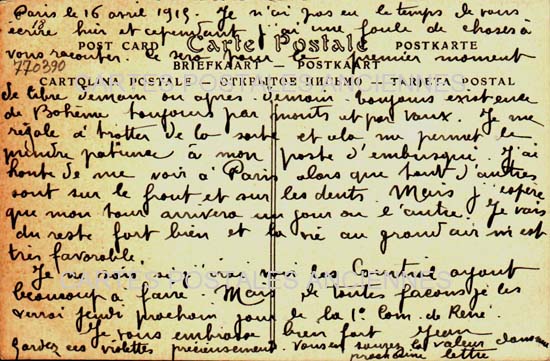 Paris le 16 avril 1915. Je n'ai pas eu le temps de vous
écrire hier et cependant j'ai une foule de choses à
vous raconter. Ce sera pour le premier moment
POST CARD Carte Postale POSTKARTE
770390
BRIEFKAART — POSTKAART
CARTOLINA POSTALE — ОТКРЫТОЕ ПИСЬМО — TARJETA POSTAL
CARTES POSTALES ANCIENNES
de libre demain ou après-demain. Toujours existence
de Bohème toujours par monts et par vaux. Je me
régale à trotter de la sorte et cela me permet de
prendre patience à mon poste d'embusqué. J'ai
honte de me voir à Paris alors que tant d'autres
sont sur le front et sur les dents. Mais j'espère
que mon tour arrivera un jour ou l'autre. Je vais
du reste fort bien et la vie au grand air m'est
très favorable.
Je ne sais si j'irai voir les ayant
CARTES POSTALES ANCIENNES
beaucoup à faire. Mais de toutes façons je les
verrai jeudi prochain jour de la 1e Com. de René.
Je vous embrasse bien fort Jean
Gardez ces violettes précieusement. Vous en saurez la valeur dans une
prochaine lettre